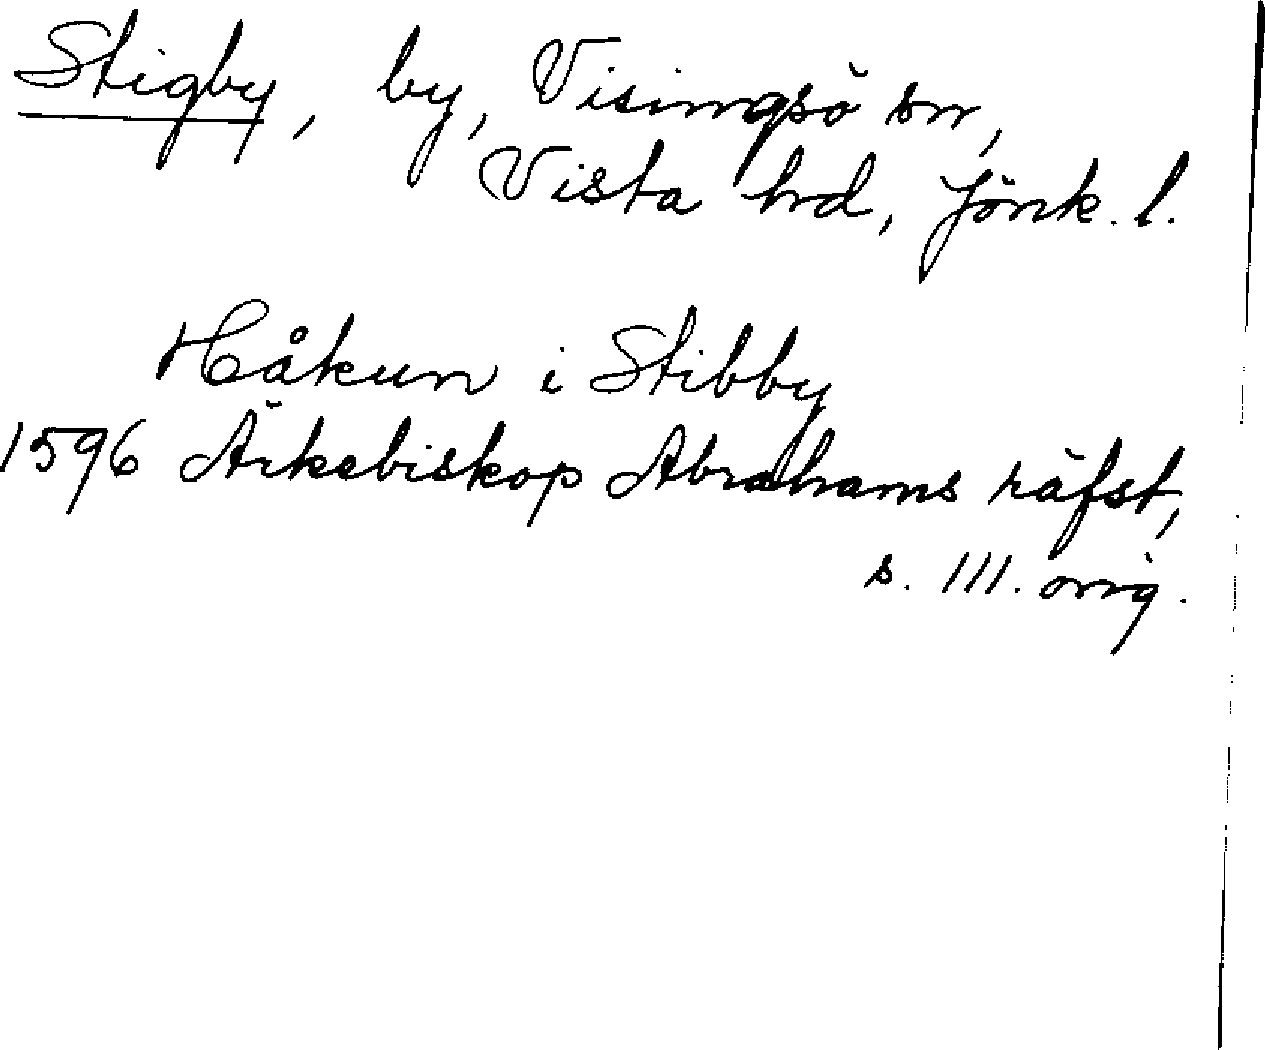 Stigby, by, Visingsö sn,
Vista hrd, Jönk. l.
Håkun i Stibby
1596 Ärkebiskop Abrahams räfst,
s. 111. orig.